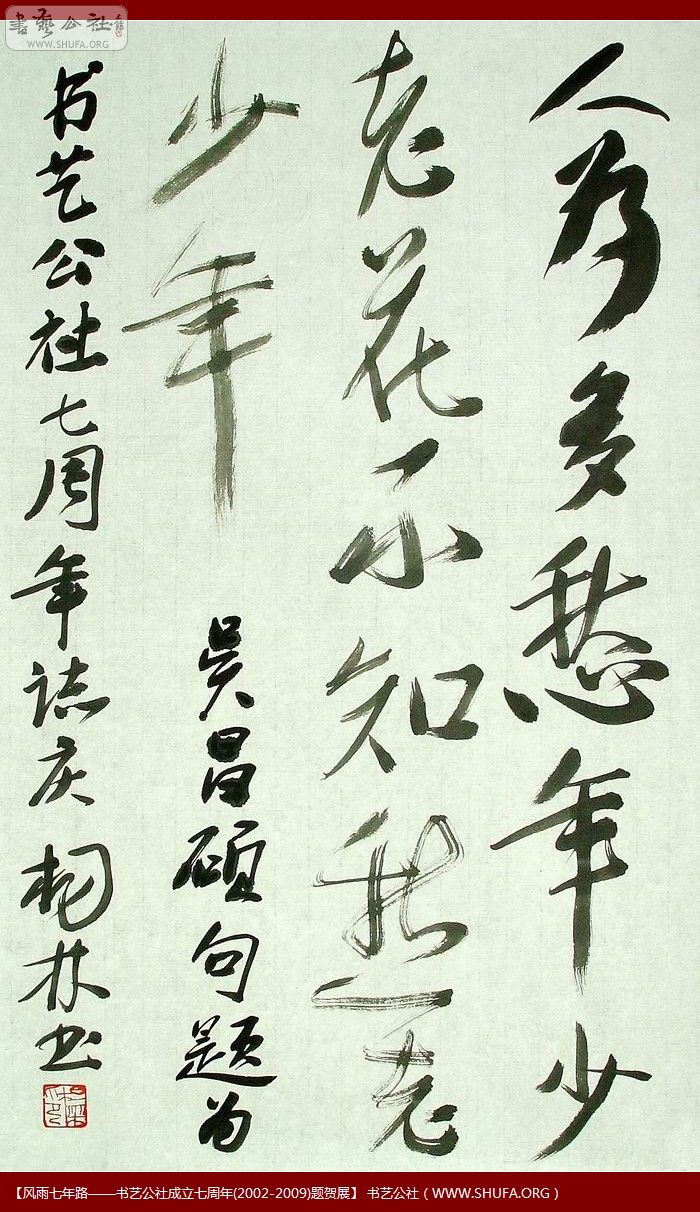 書藝公社
WWW.SHUFA.ORG
人为多愁年少
老花不知愁老
少年
吴昌硕句题为
书艺公社七周年誌庆 林书
【风雨七年路——书艺公社成立七周年(2002-2009)题贺展】 书艺公社（WWW.SHUFA.ORG）